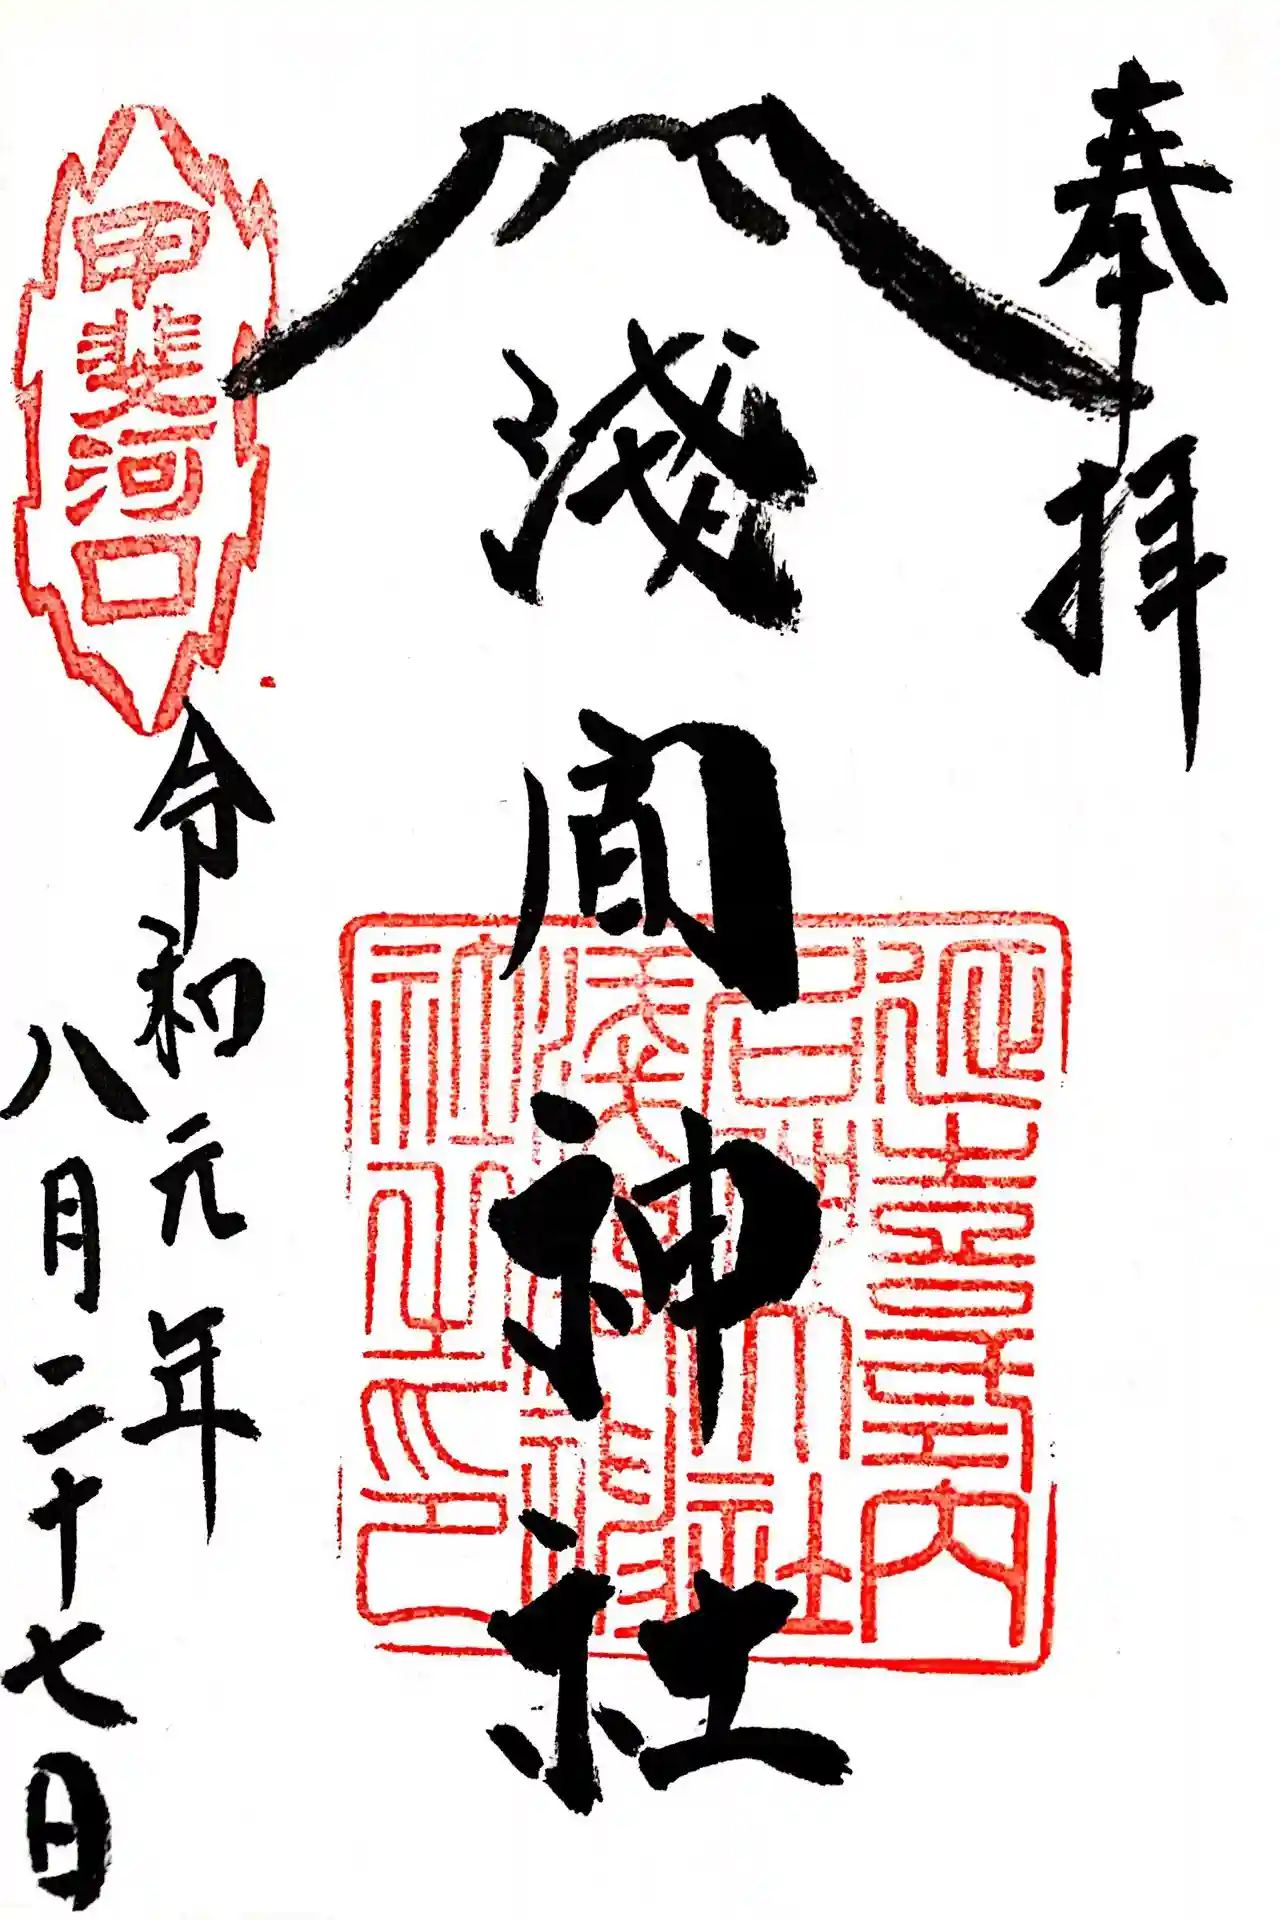 奉拝
淺間神社
延喜式内
名神大社
淺間神
社之印
甲斐河口
令和元年
八月二十七日